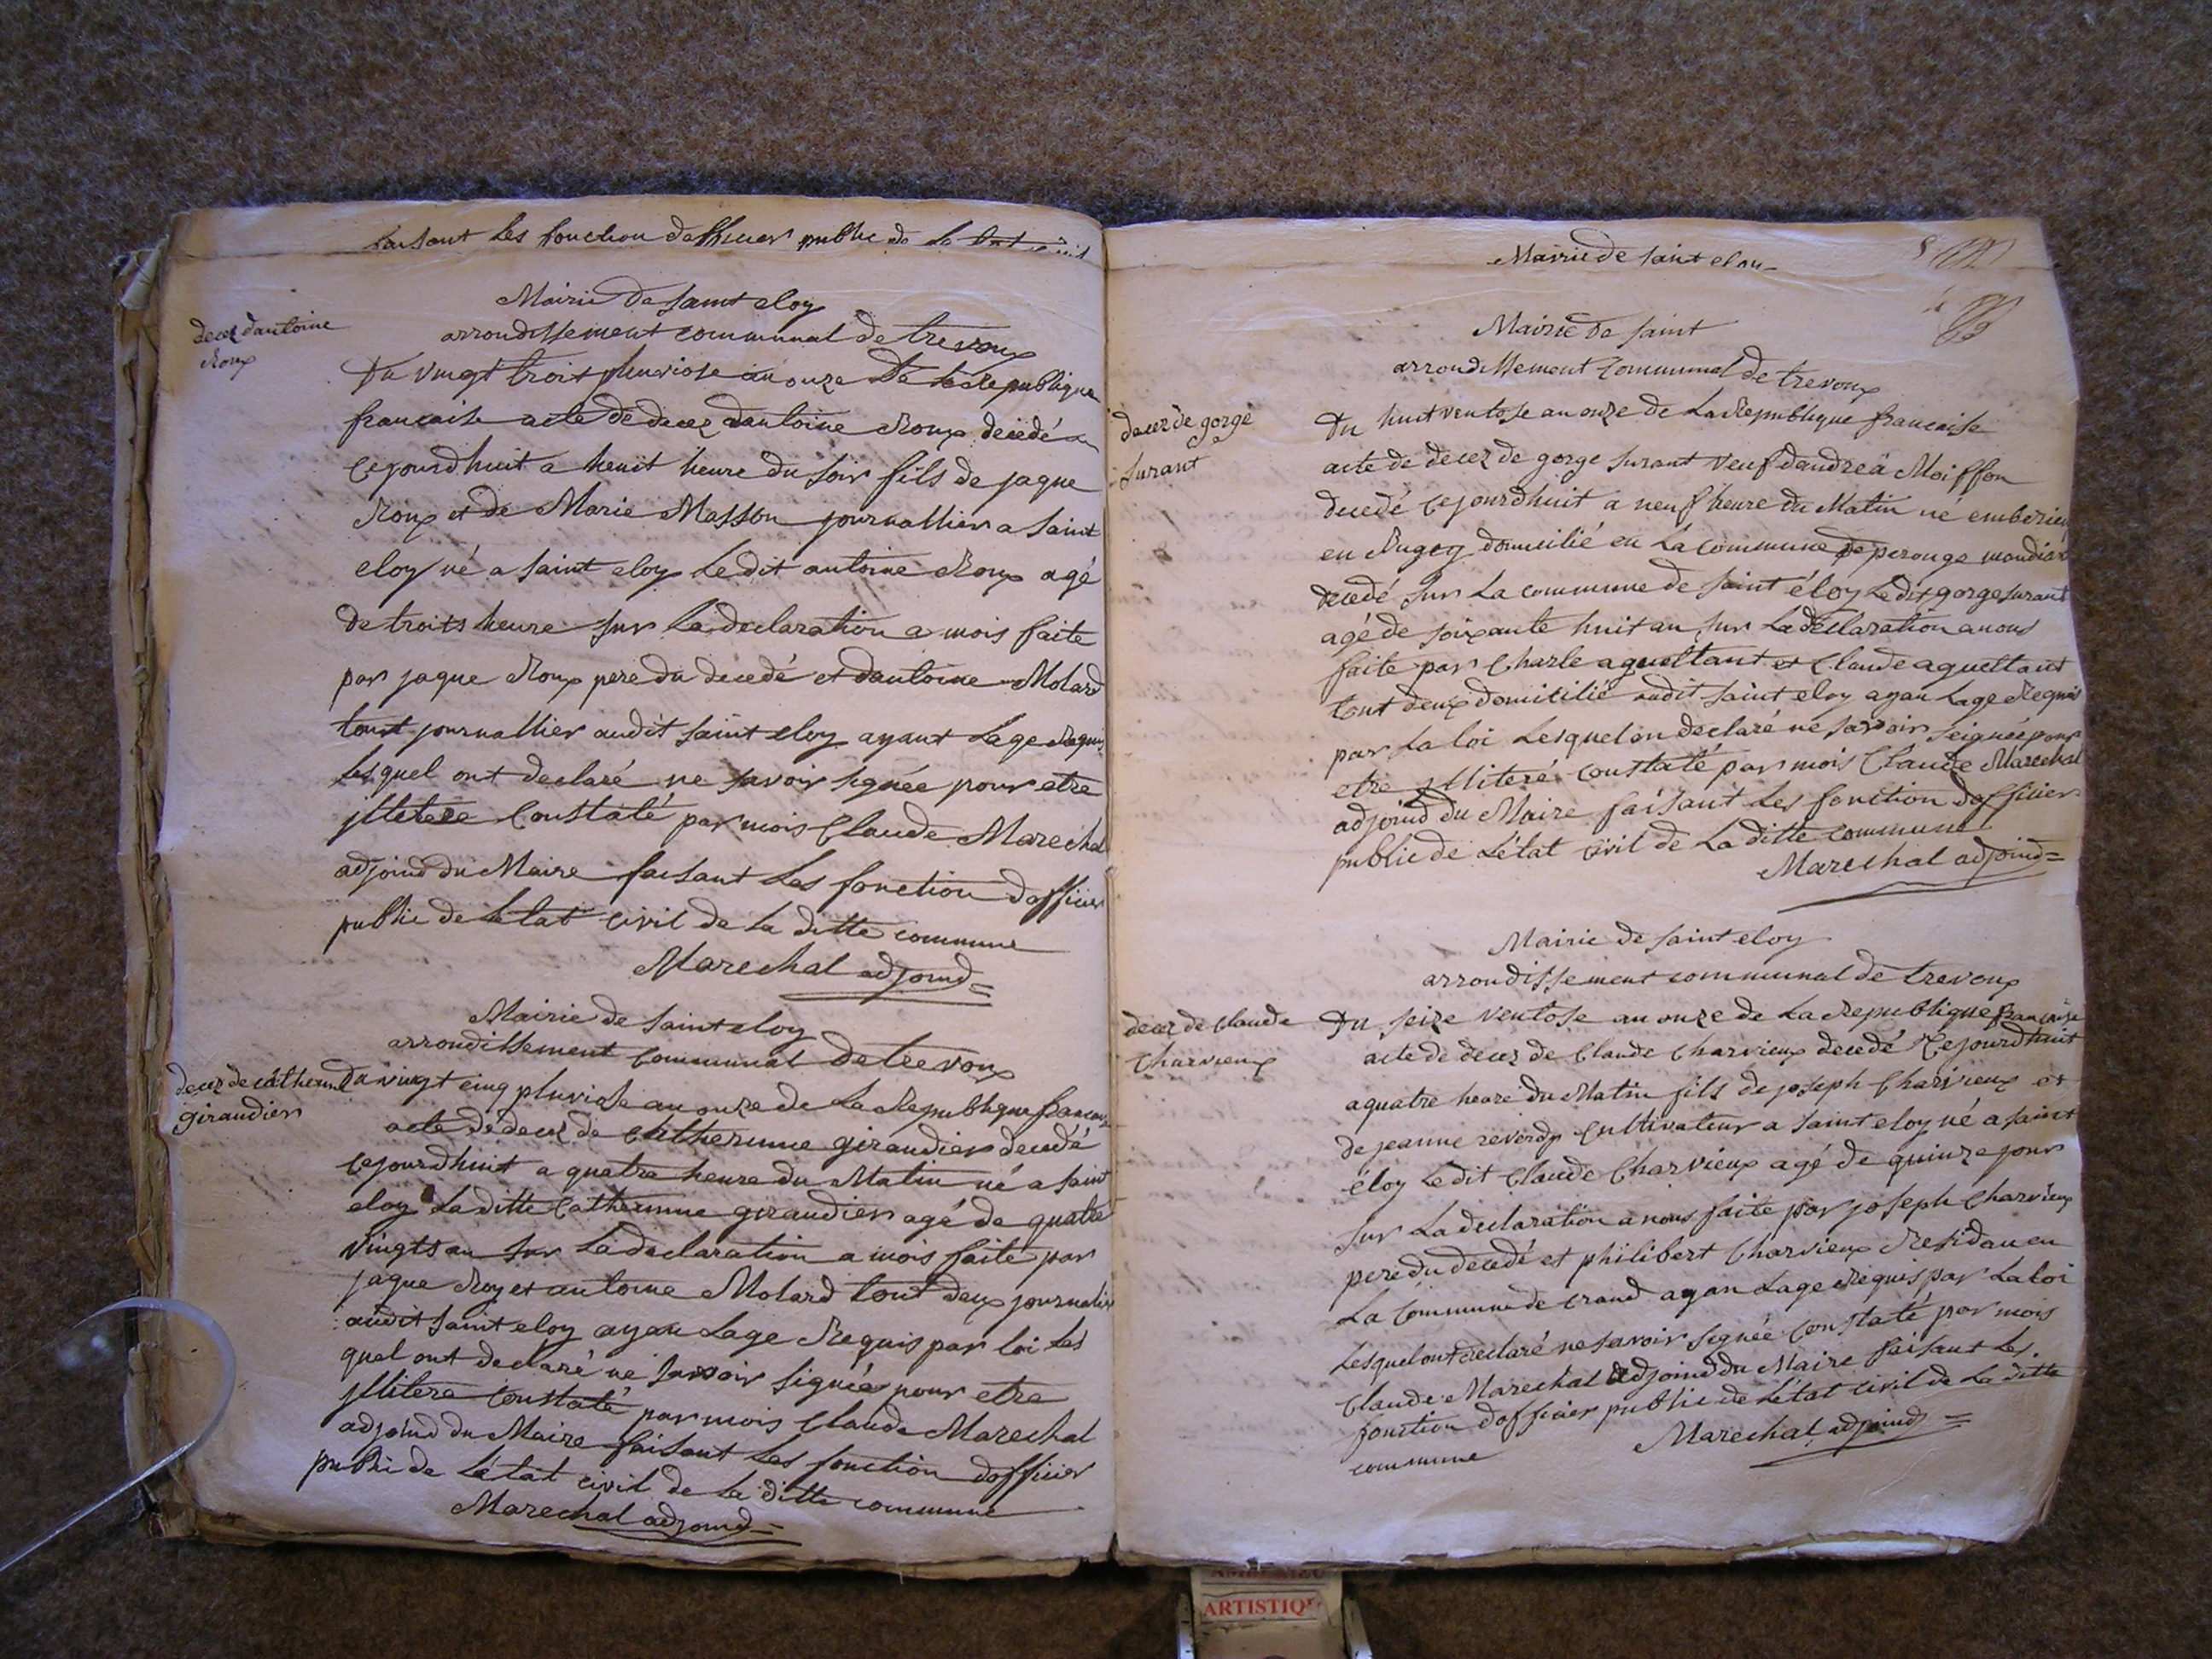 faisant Les fonction dofficier public de Le
Mairie de saint eloy
arrondissement communal de trevoux
decez dantoine
Roux
Du vingt trois pluviose an onze de la Republique
francaise acte de decez dantoine Roux decedé
cejourdhuit a heuit heure du soir fils de jaque
Roux et de Marie Masson journallier a saint
eloy né a saint eloy Le dit antoine Roux agé
de troits heure sur La declaration a mois faite
par jaque Roux pere du decedé et dantoine Molard
tout journallier audit saint eloy ayant Lage Requis
Lesquel ont declaré ne savoir signée pour etre
jlletere Constaté par mois Claude Marechal
adjoind du Maire faisant Les fonction dofficier
public de Létat civil de La ditte commune
Marechal adjoind
Mairie de saint eloy
arrondissement Communal de trevoux
decez de catherinne
giraudier
Du vingt cinq pluviose an onze de La Republique francaise
acte de decez de Catherinne giraudier decedé
cejourdhuit a quatre heure du Matin né a saint
eloy La ditte Catherinne giraudier agé de quatre
vingts an sur La declaration a mois faite par
jaque Roy et antoine Molard tout deux journalier
audit saint eloy ayan Lage Requis par loi Les
quel ont declaré ne savoir signée pour etre
jllitere constaté par mois Claude Marechal
adjoind du Maire faisant Les fonction dofficier
public de Létat civil de La ditte commune
Marechal adjoind
Mairie de saint eloy
Mairie de saint
arrondissement Communal de trevoux
decez de gorge
surant
Du huit ventose an onze de La Republique francaise
acte de decez de gorge surant veuf dandrea Moiffon
decedé cejourdhuit a neuf heure du Matin ne emberieu
en Bugey domicilié en La commune de perouge mandian
decedé sur La commune de saint éloy Le dit gorge surant
agé de soixante huit an sur La déclaration a nous
faite par Charle aguettant et Claude aguettant
tout deux domicilié audit saint eloy ayan Lage Requis
par La loi Lesquel on declaré ne savoir seignée pour
etre jlliteré Constaté par mois Claude Marechal
adjoind du Maire faisant Les fonction dofficier
public de Létat civil de La ditte commune
Marechal adjoind
Mairie de saint eloy
arrondissement communal de trevoux
decez de Claude
Charvieux
Du seize ventose an onze de La Republique francaise
acte de decez de Claude Charvieux decedé Cejourdhuit
a quatre heure du Matin fils de joseph Charvieux et
de jeanne reverdy Cultivateur a saint eloy né a saint
éloy Le dit Claude Charvieux agé de quinze jour
sur La declaration a nous faite par joseph Charvieux
pere du decedé et philibert Charvieux Residan en
La Commune de crand ayan Lage Requis par La loi
Lesquel ont declaré ne savoir signée Constaté par mois
Claude Marechal adjoind du Maire faisant Les
fonction dofficier public de Létat civil de La ditte
commune
Marechal adjoind
ARTISTIQ